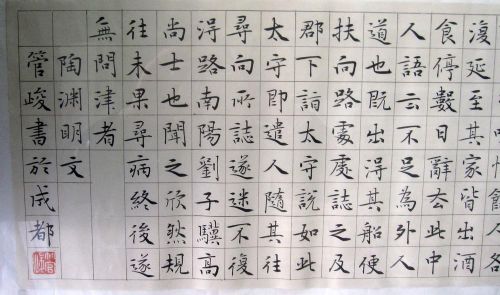 餘人各
復延至其家皆出酒
食停數日辭去此中
人語云不足為外人
道也既出得其船便
扶向路處處誌之及
郡下詣太守說如此
太守即遣人隨其往
尋向所誌遂迷不復
得路南陽劉子驥高
尚士也聞之欣然規
往未果尋病終後遂
無問津者
陶淵明文
管峻書於成都